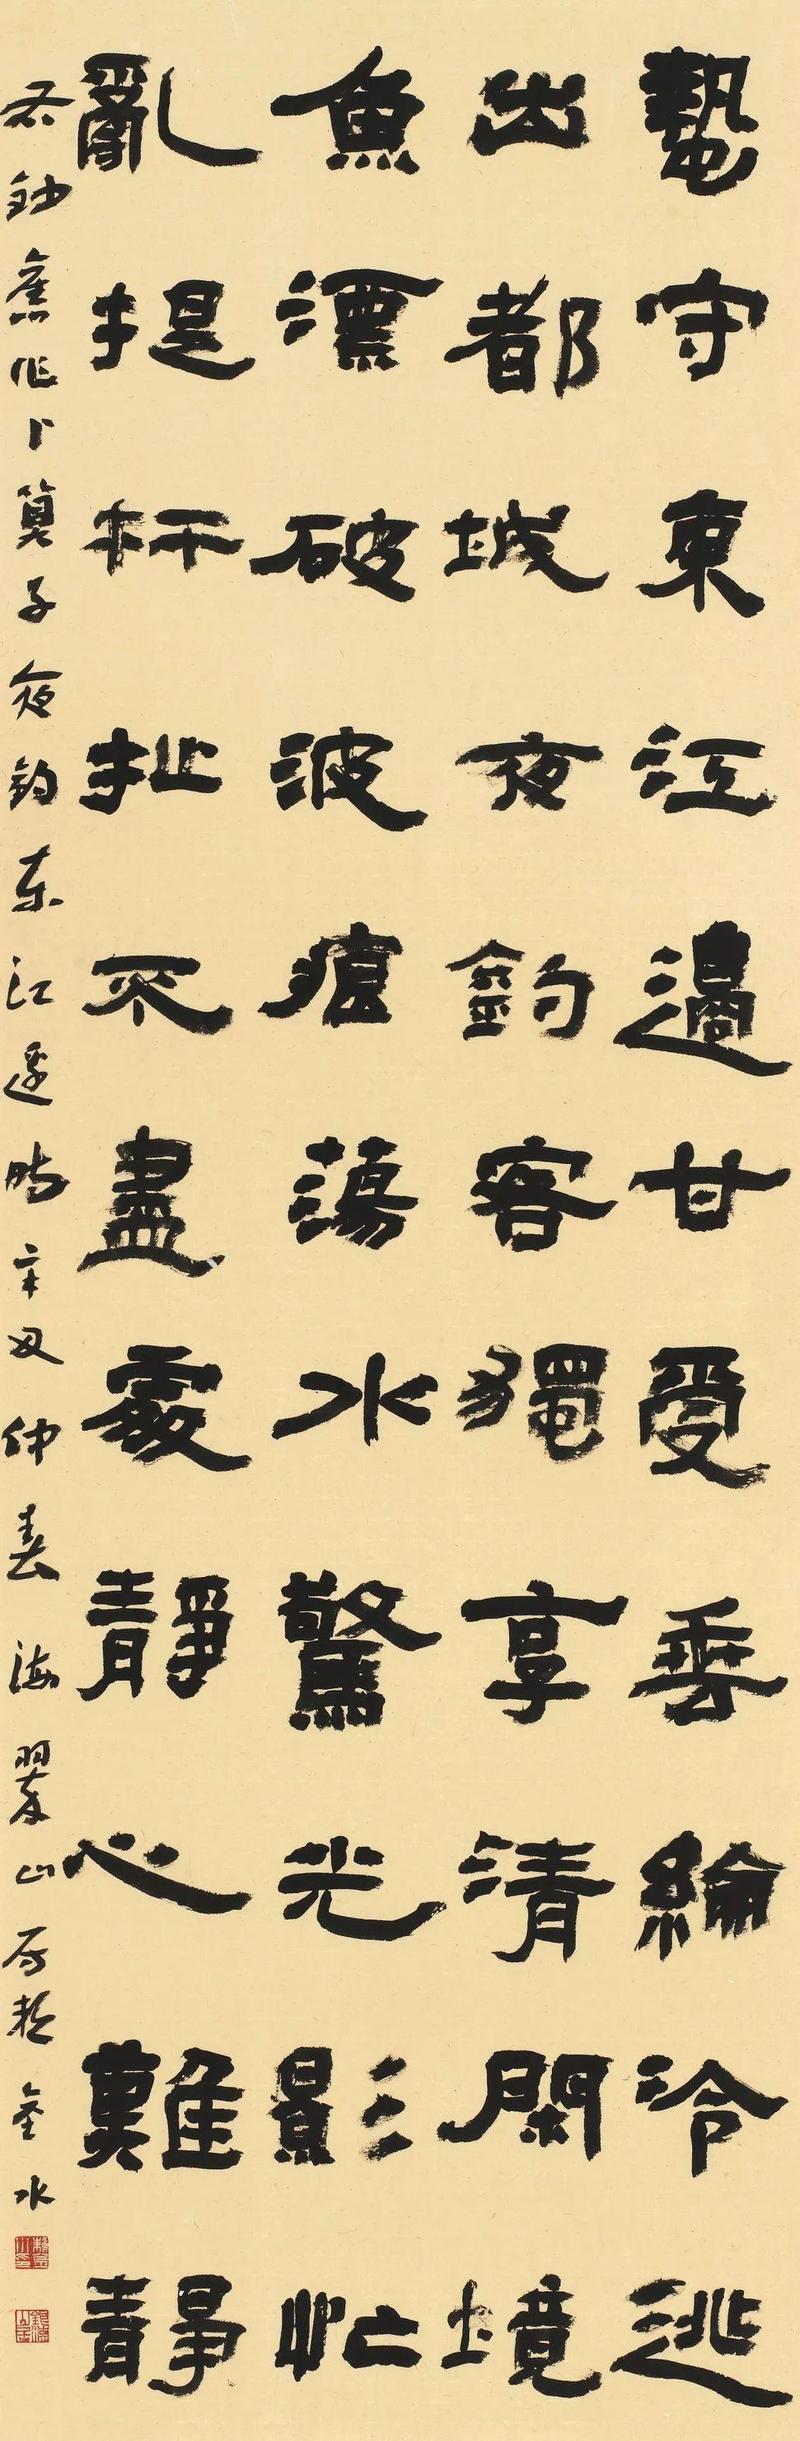 蟄守東江邊甘受垂綸冷逃
出都城夜釣客獨享清閑境
魚漂破波痕蕩水驚光影忙
亂提杆扯不盡處靜心難靜
右鈔舊作卜算子夜釣東江邊時辛丑仲春海翠山房賴金水